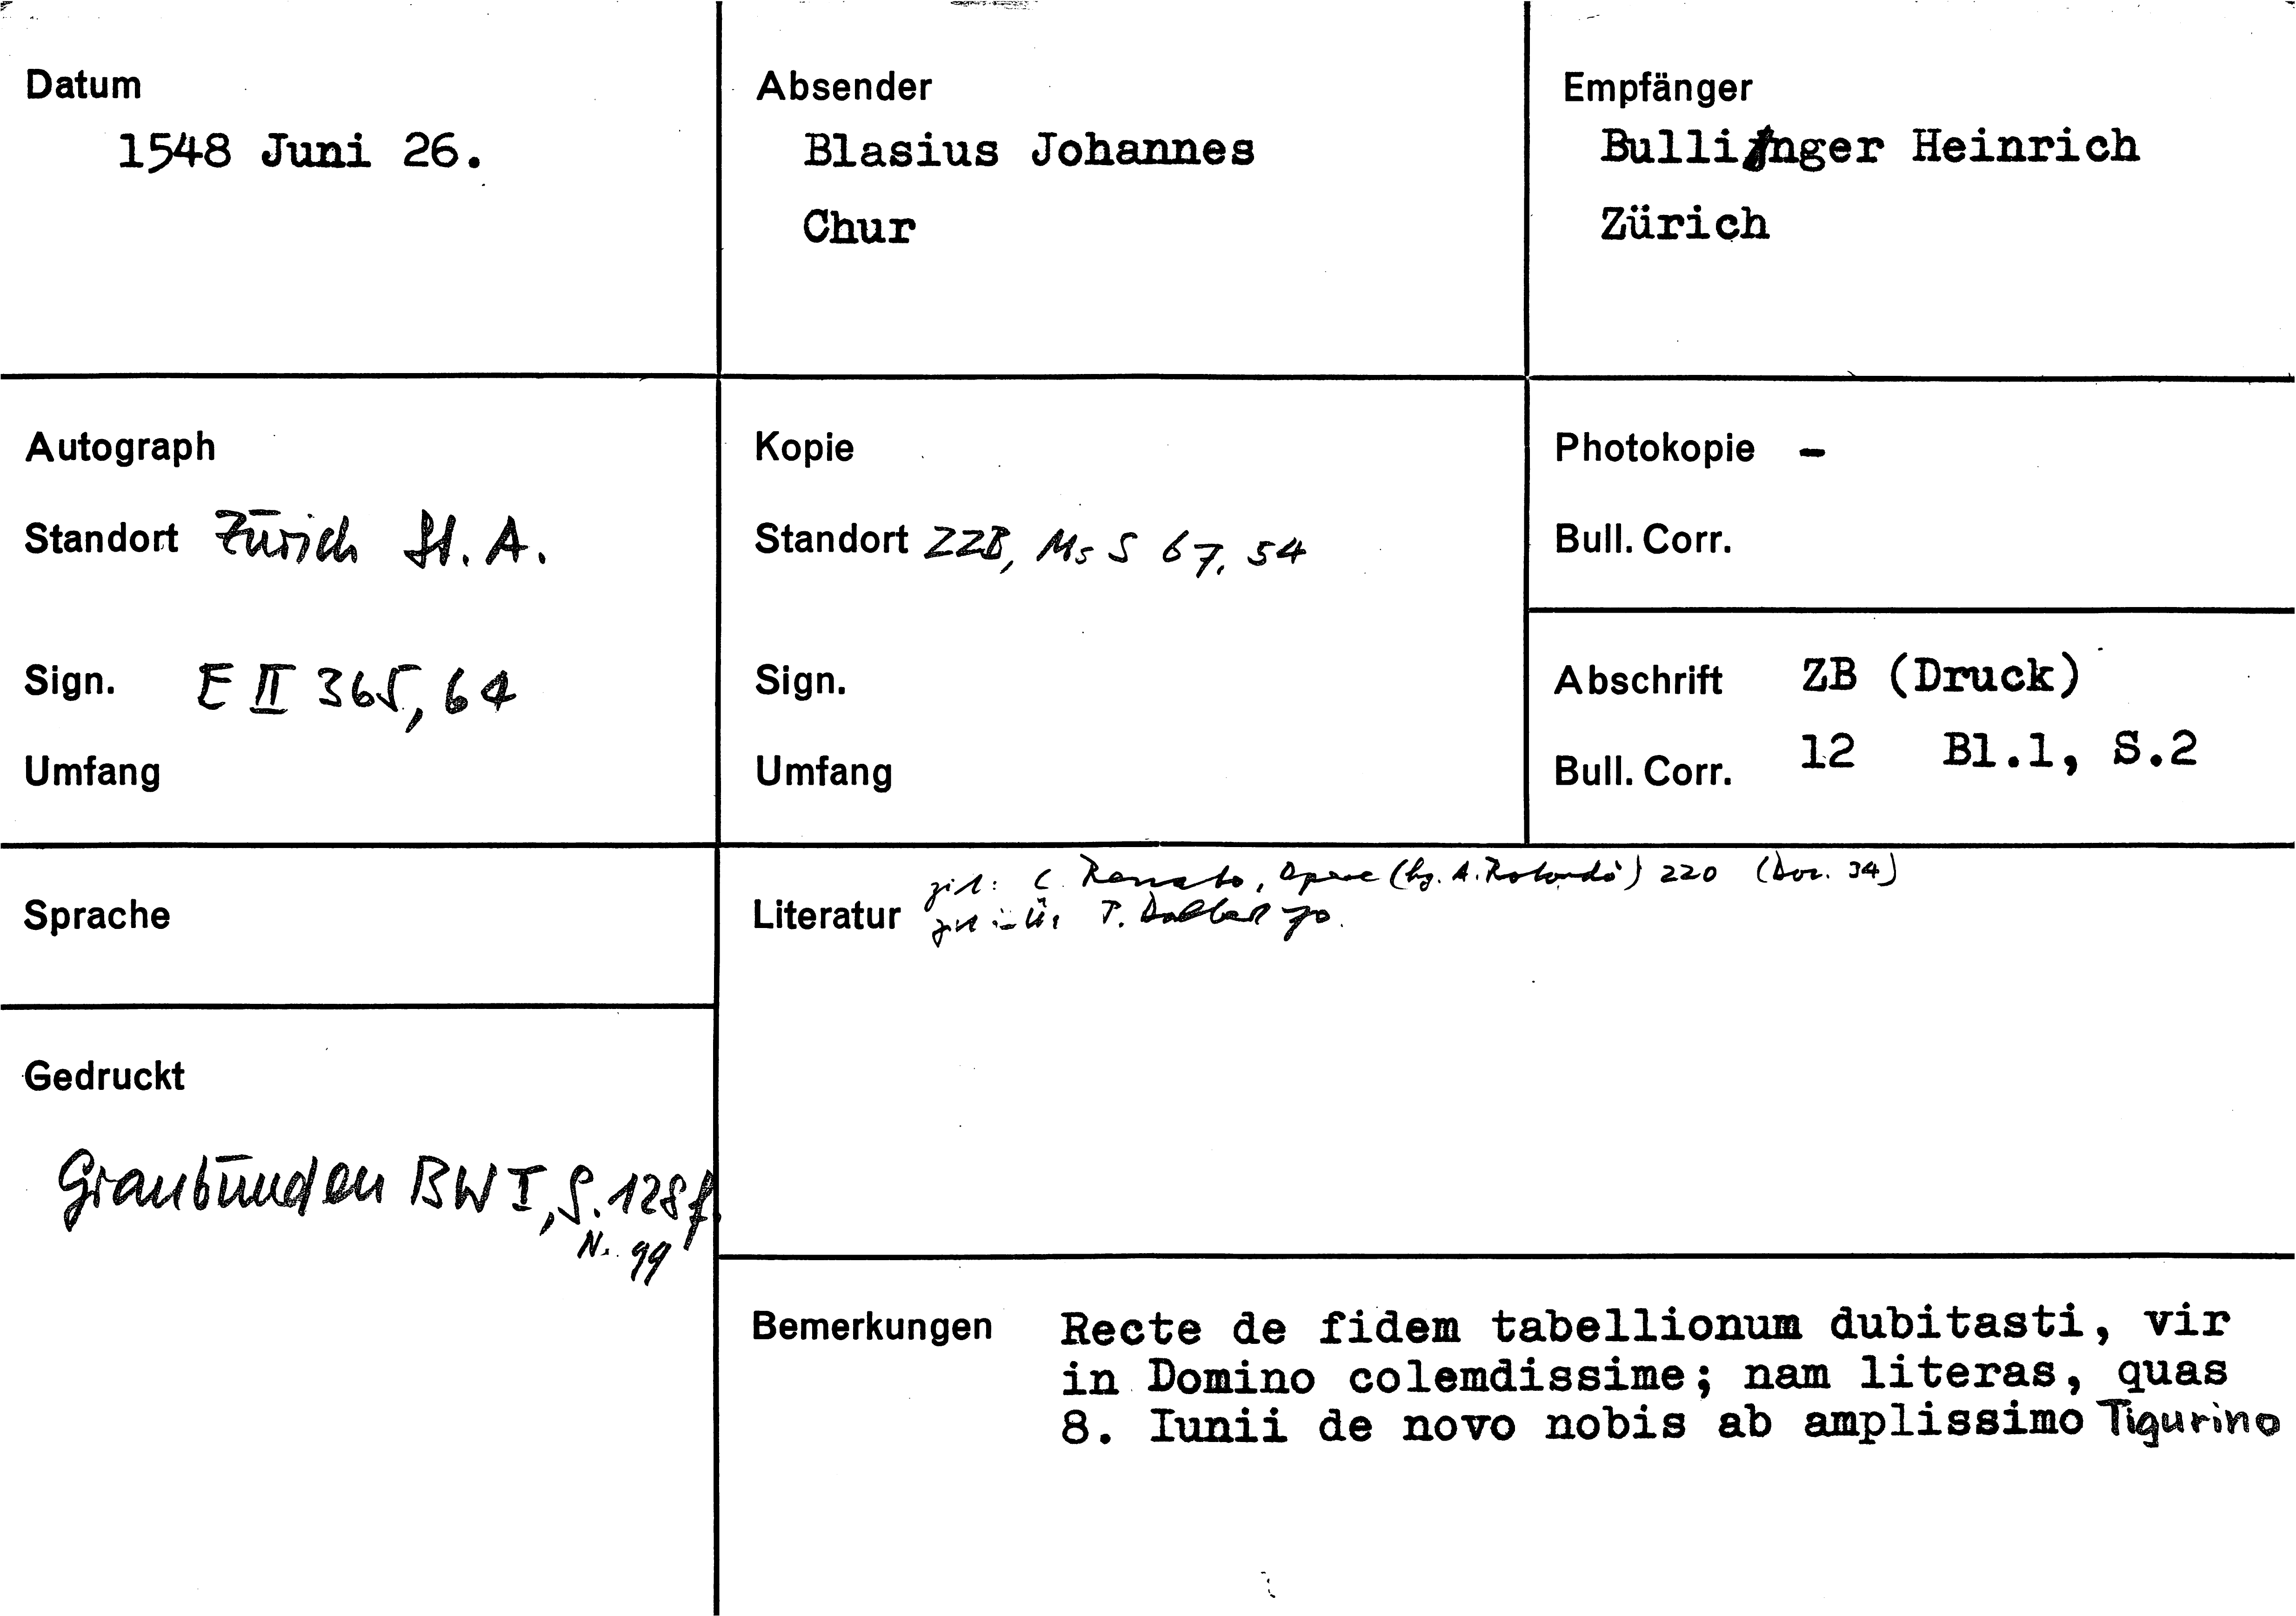 Datum
1548 Juni 26.
Absender
Blasius Johannes
Chur
Empfänger
Bullinger Heinrich
Zürich
Autograph
Standort Zürich St. A.
Sign. E II 365, 64
Umfang
Kopie
Standort ZZB, Ms S 67, 54
Sign.
Umfang
Photokopie -
Bull. Corr.
Abschrift ZB (Druck)
Bull. Corr. 12 Bl.1, S.2
Sprache
Gedruckt
Graubünden BW I, S. 128 f.
Nr. 99
zit: C. Renato, Opere (hg. A. Rotondò) 220 (Doc. 34)
Literatur zit in Üs P. 70.
Bemerkungen Recte de fidem tabellionum dubitasti, vir
in Domino colemdissime; nam literas, quas
8. Iunii de novo nobis ab amplissimo Tigurino